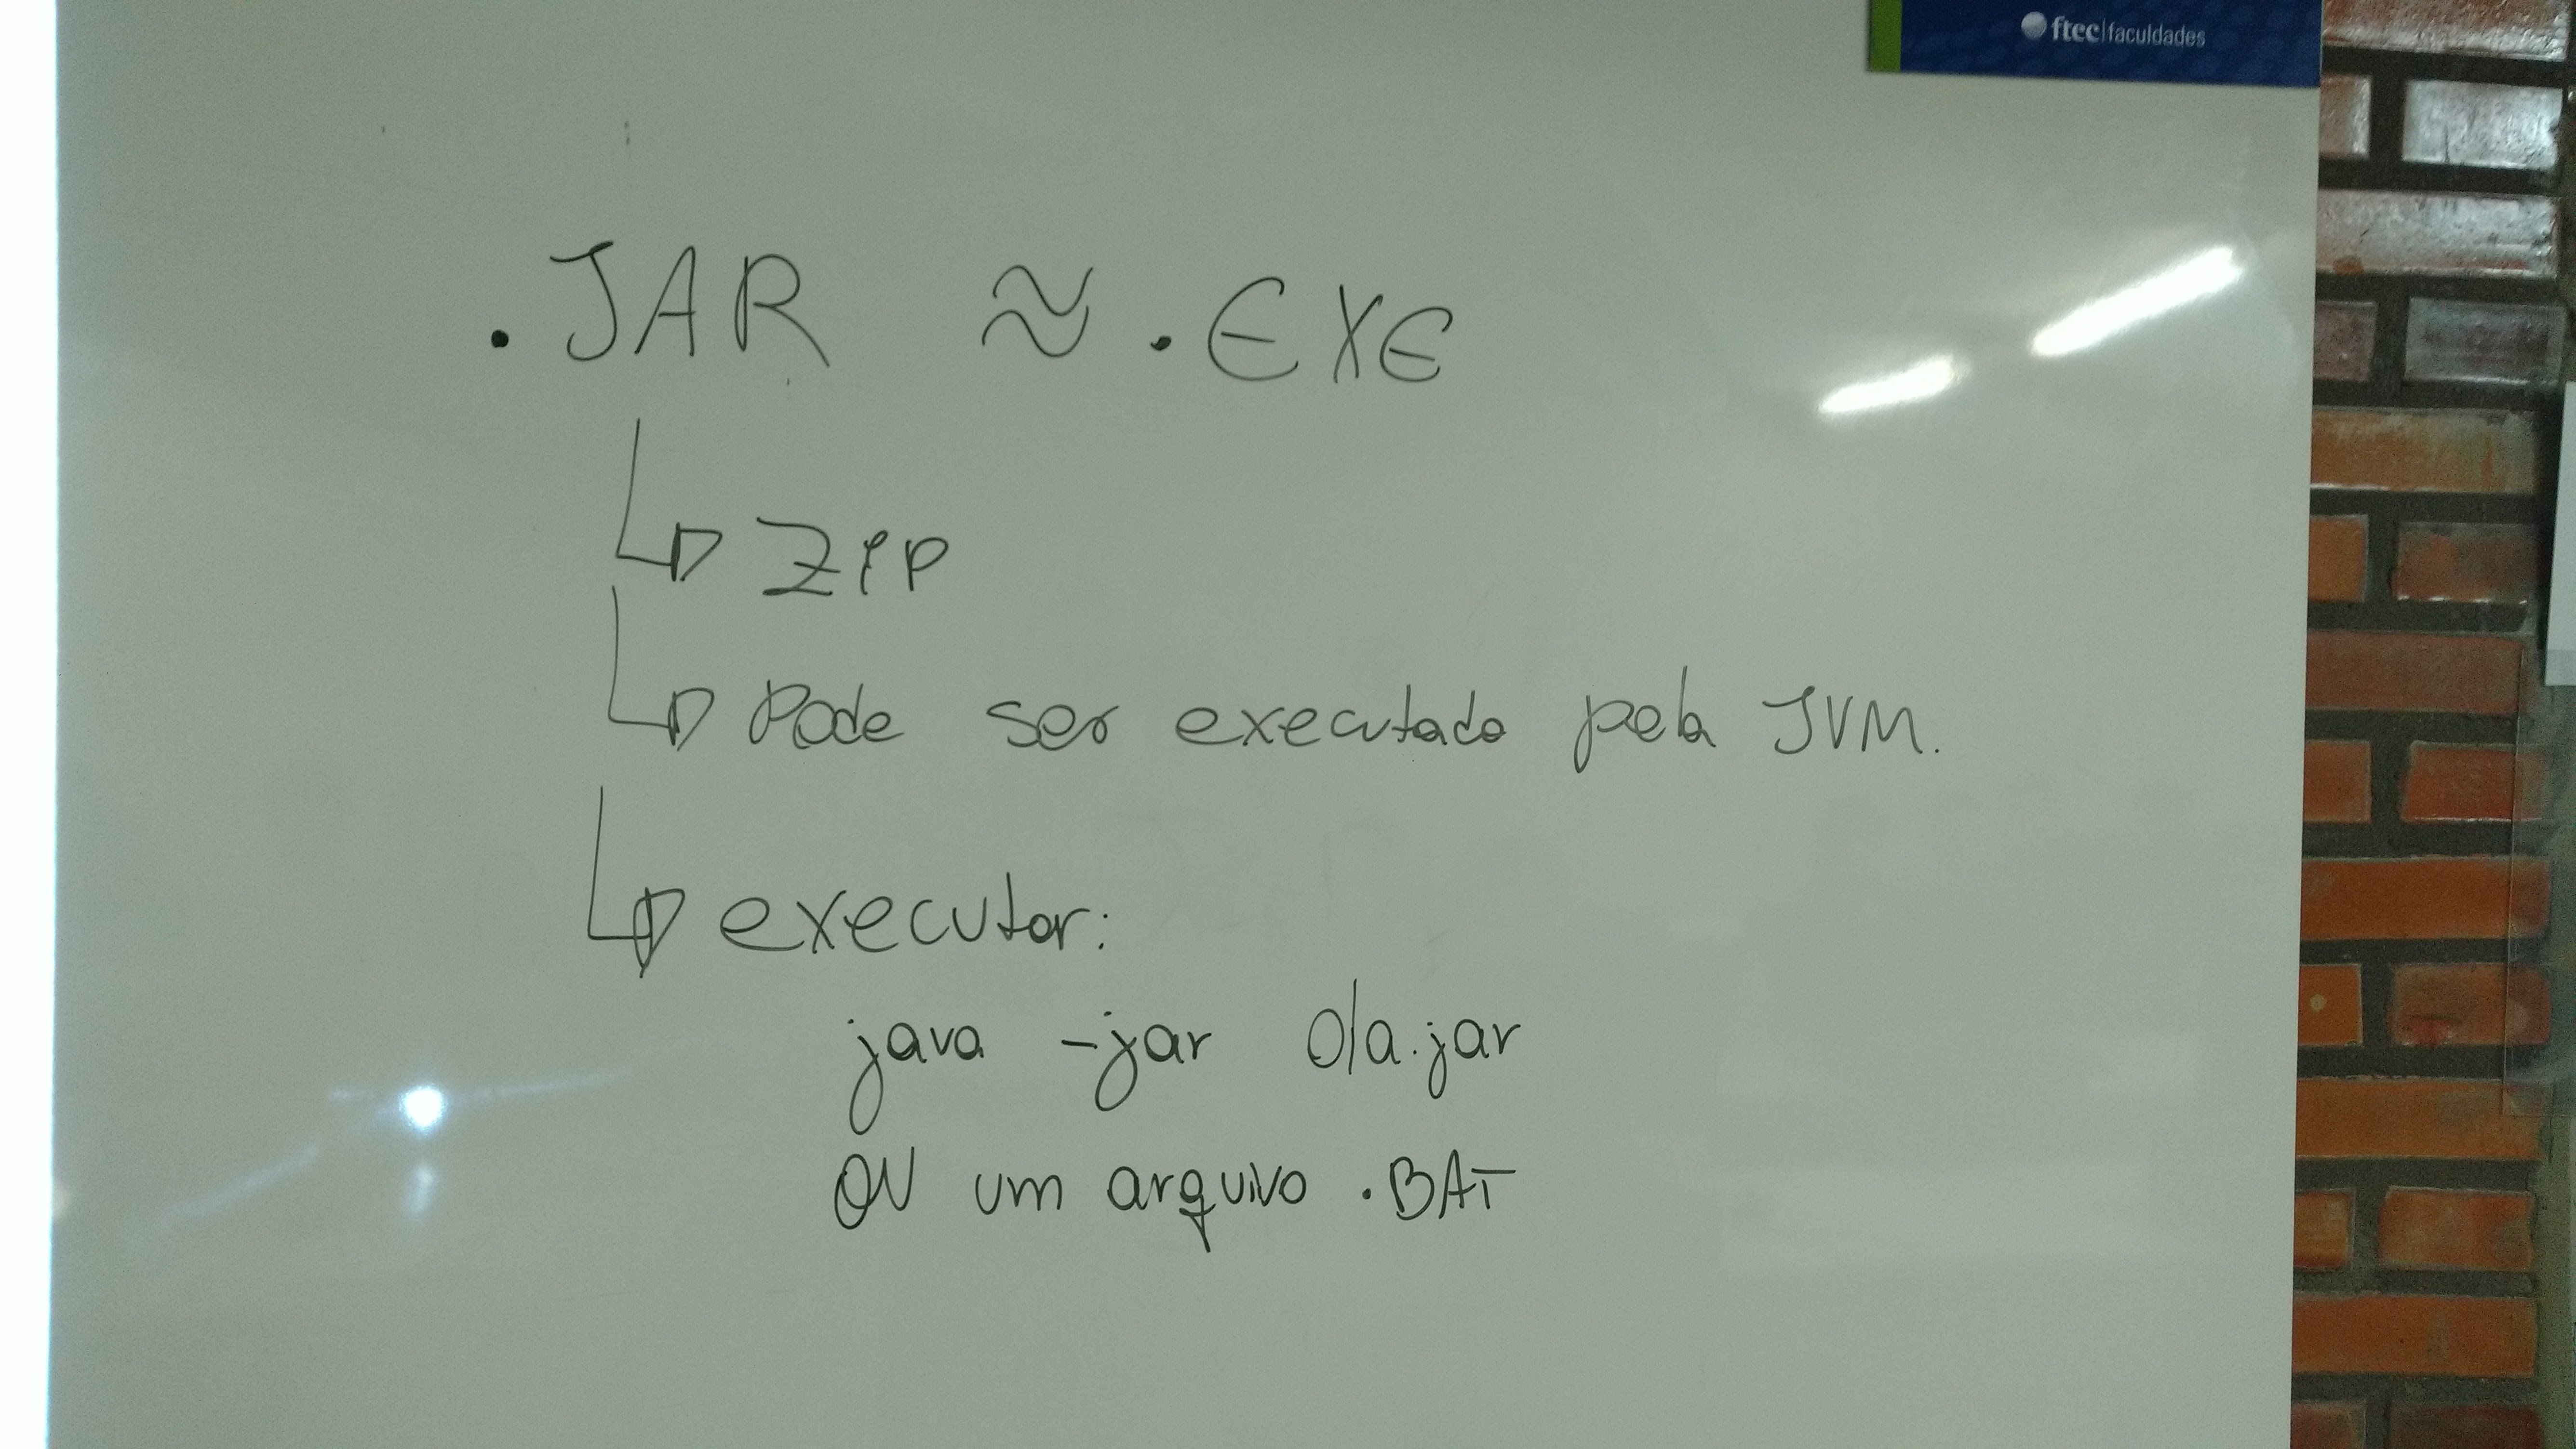 ftec|faculdades
.JAR ≈ .EXE
ZIP
Pode ser executado pela JVM.
executar:
java -jar Ola.jar
OU um arquivo .BAT